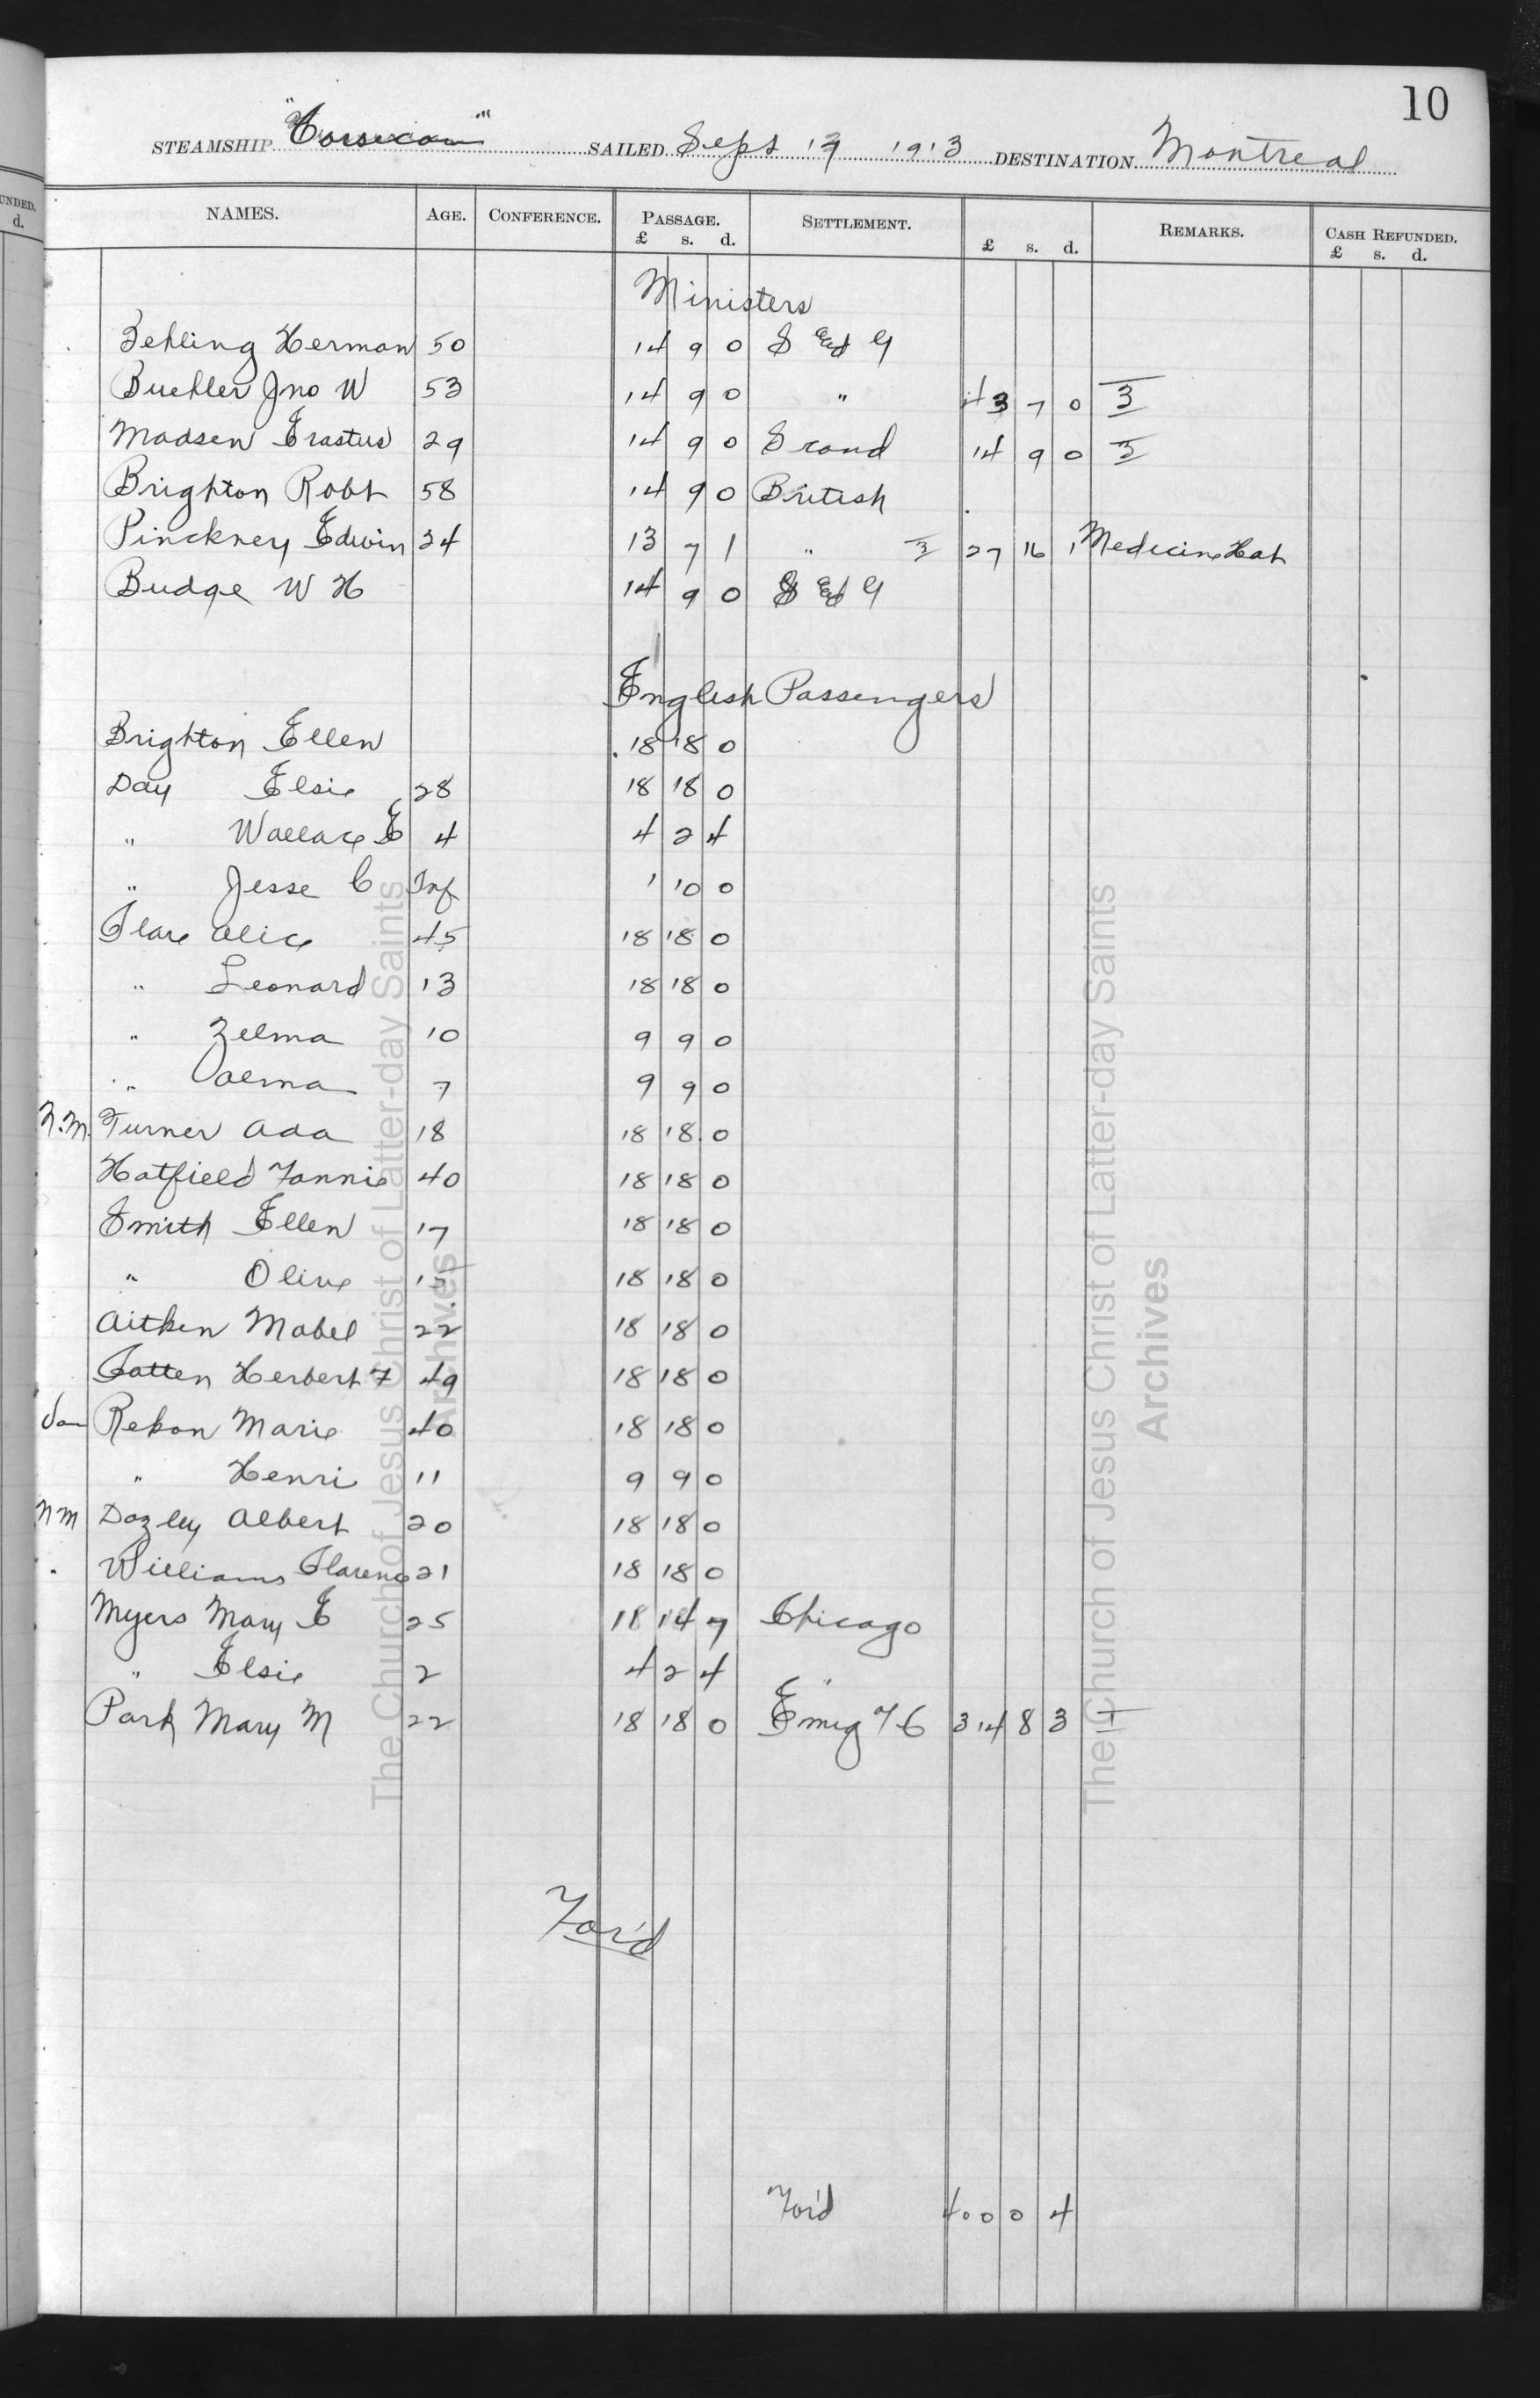 10
STEAMSHIP "Corsican" SAILED Sept 19 1913 DESTINATION Montreal
UNDED.
d.
NAMES. AGE. CONFERENCE. PASSAGE. £ s. d. SETTLEMENT. £ s. d. REMARKS. CASH REFUNDED. £ s. d.
Ministers
Behling Herman 50 14 9 0 S & G
Buehler Jno W 53 14 9 0 " 43 7 0 3
Madsen Erastus 29 14 9 0 Scand 14 9 0 3
Brighton Robt 58 14 9 0 British
Pinckney Edwin 24 13 7 1 " 3 27 16 1 Medicine Hat
Budge W H 14 9 0 S & G
English Passengers
Brighton Ellen 18 18 0
Day Elsie 28 18 18 0
" Wallace E 4 4 2 4
" Jesse C Inf 1 10 0
Clare Alice 45 18 18 0
" Leonard 13 18 18 0
" Zelma 10 9 9 0
" Valma 7 9 9 0
N.M. Turner Ada 18 18 18 0
Hatfield Fannie 40 18 18 0
Smith Ellen 17 18 18 0
" Olive 15 18 18 0
Aitken Mabel 22 18 18 0
Herbert F 49 18 18 0
Rekon Marie 40 18 18 0
" Henri 11 9 9 0
NM Dozley Albert 20 18 18 0
Williams Clarence 21 18 18 0
Myers Mary E 25 18 14 7 Chicago
" Elsie 2 4 2 4 "
Park Mary M 22 18 18 0 Emig 76 314 8 3 I
For'd
For'd 400 0 4
The Church of Jesus Christ of Latter-day Saints
Archives
The Church of Jesus Christ of Latter-day Saints
Archives